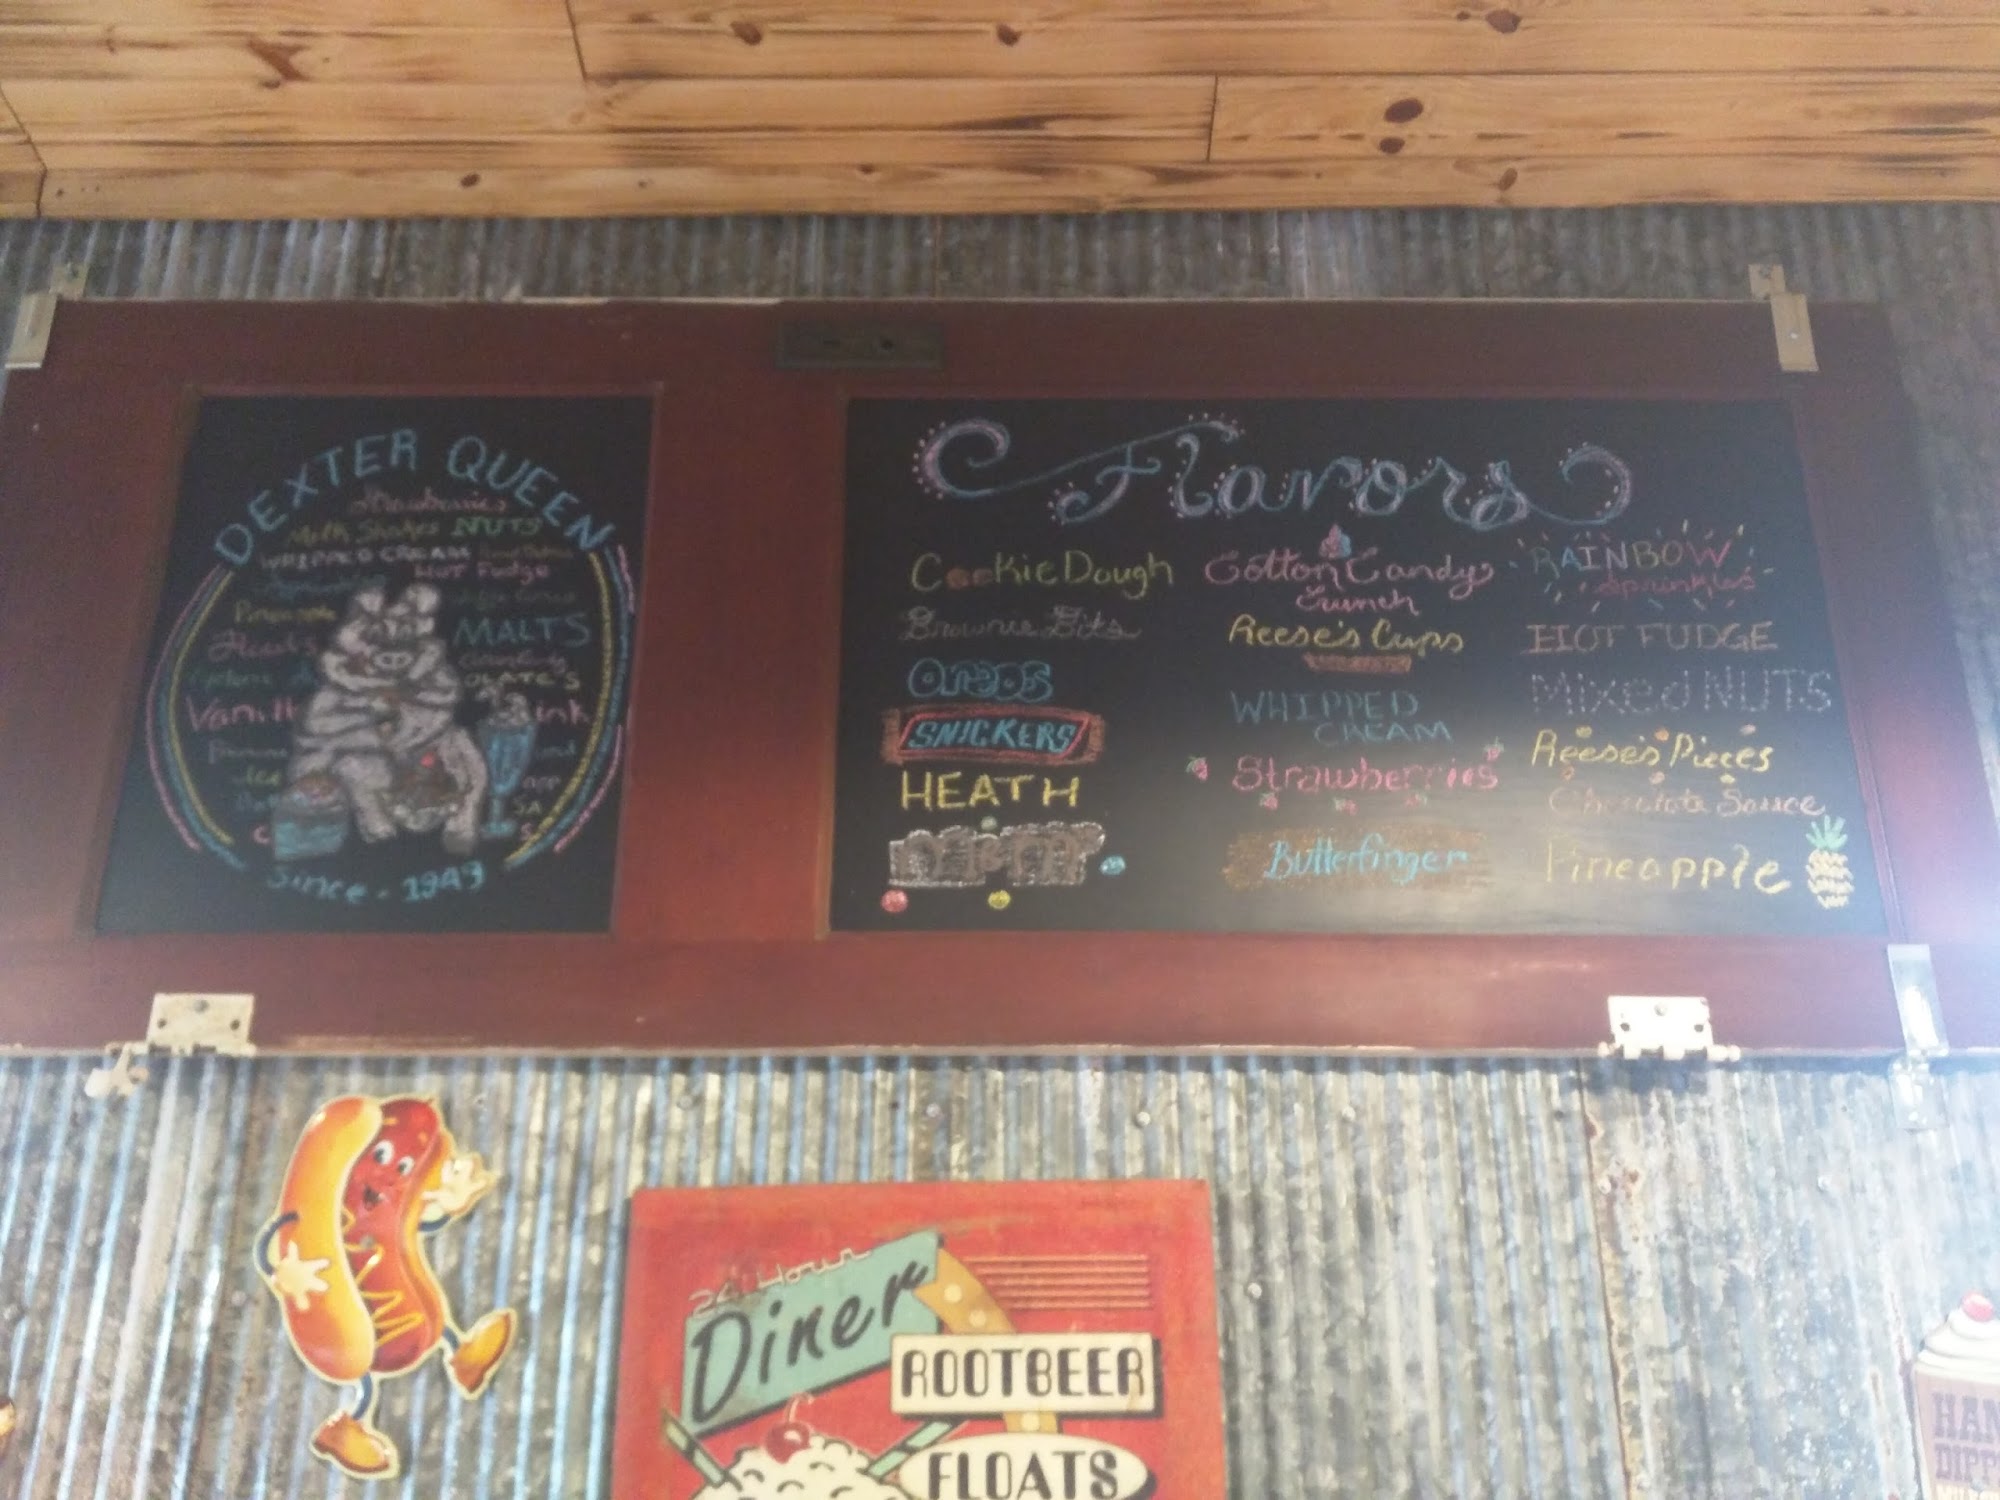 DEXTER QUEEN
Strawberries
Milk Shakes NUTS
WHIPPED CREAM
HOT Fudge
Pineapple
MALTS
Heath
OLATE'S
Since - 1949
Flavors
CooKie Dough
Brownie Bits
Oreos
SNICKERS
HEATH
Cotton Candy
Crunch
Reese's Cups
WHIPPED
CREAM
Strawberries
Butterfinger
RAINBOW
Sprinkles
HOT FUDGE
Mixed NUTS
Reese's Pieces
Chocolate Sauce
Pineapple
24 Hour
Diner
ROOTBEER
FLOATS
HAN
DIPP